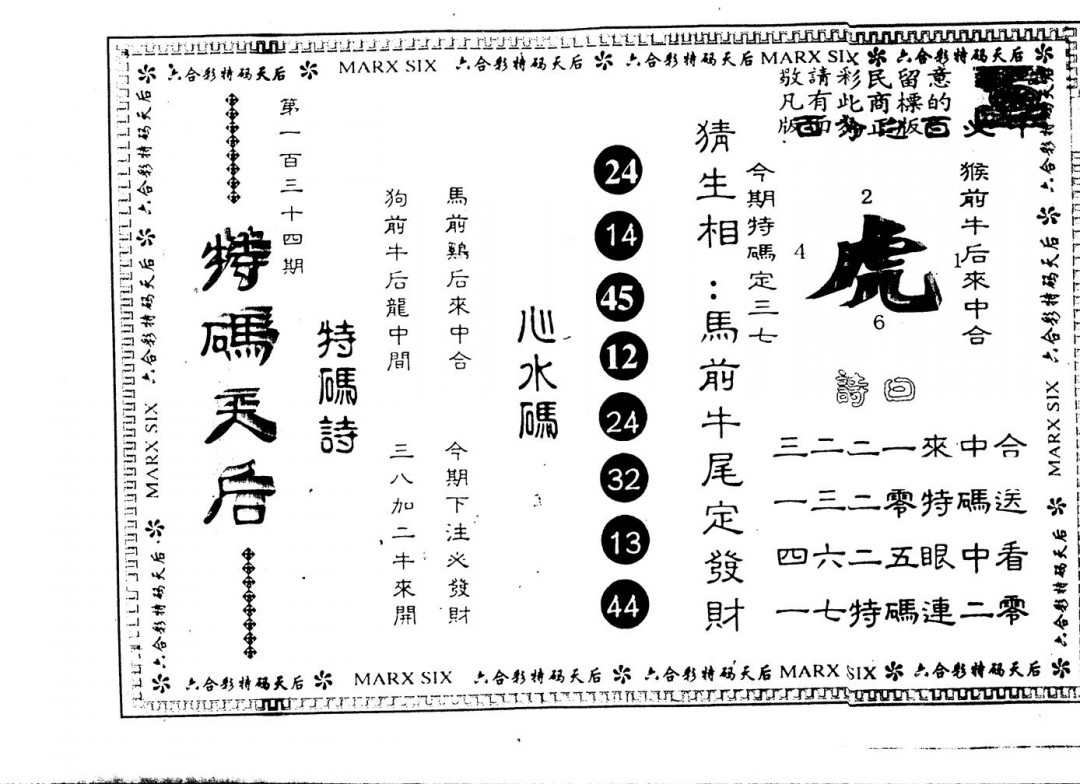 六合彩特码天后 MARX SIX 六合彩特码天后 六合彩特码天后 MARX SIX 六合彩特码天后
敬請彩民留意
凡有此商標的
版面
版
百
猴前牛后來中合
2
4
虎
1
6
今期特碼定三七
猜生相:馬前牛尾定發財
三二二一來中合
一三二零特碼送
四六二五眼中看
一七特碼連二零
24
14
45
12
24
32
13
44
心水碼
馬前鷄后來中合
今期下注必發財
狗前牛后龍中間
三八加二牛來開
特碼詩
第一百三十四期
特碼天后
六合彩特码天后
六合彩特码天后
六合彩特码天后
MARX SIX
六合彩特码天后
六合彩特码天后
六合彩特码天后
MARX SIX
六合彩特码天后
六合彩特码天后 MARX SIX 六合彩特码天后 六合彩特码天后 MARX SIX 六合彩特码天后